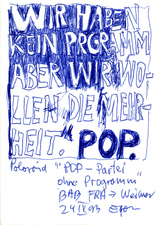 WIR HABEN
KEIN PROGRAMM
ABER WIR WO-
LLEN DIE MEHR-
HEIT. POP.
Polaroid "POP-Partei
ohne Programm"
BAB FRA → Weimar
24 II 93